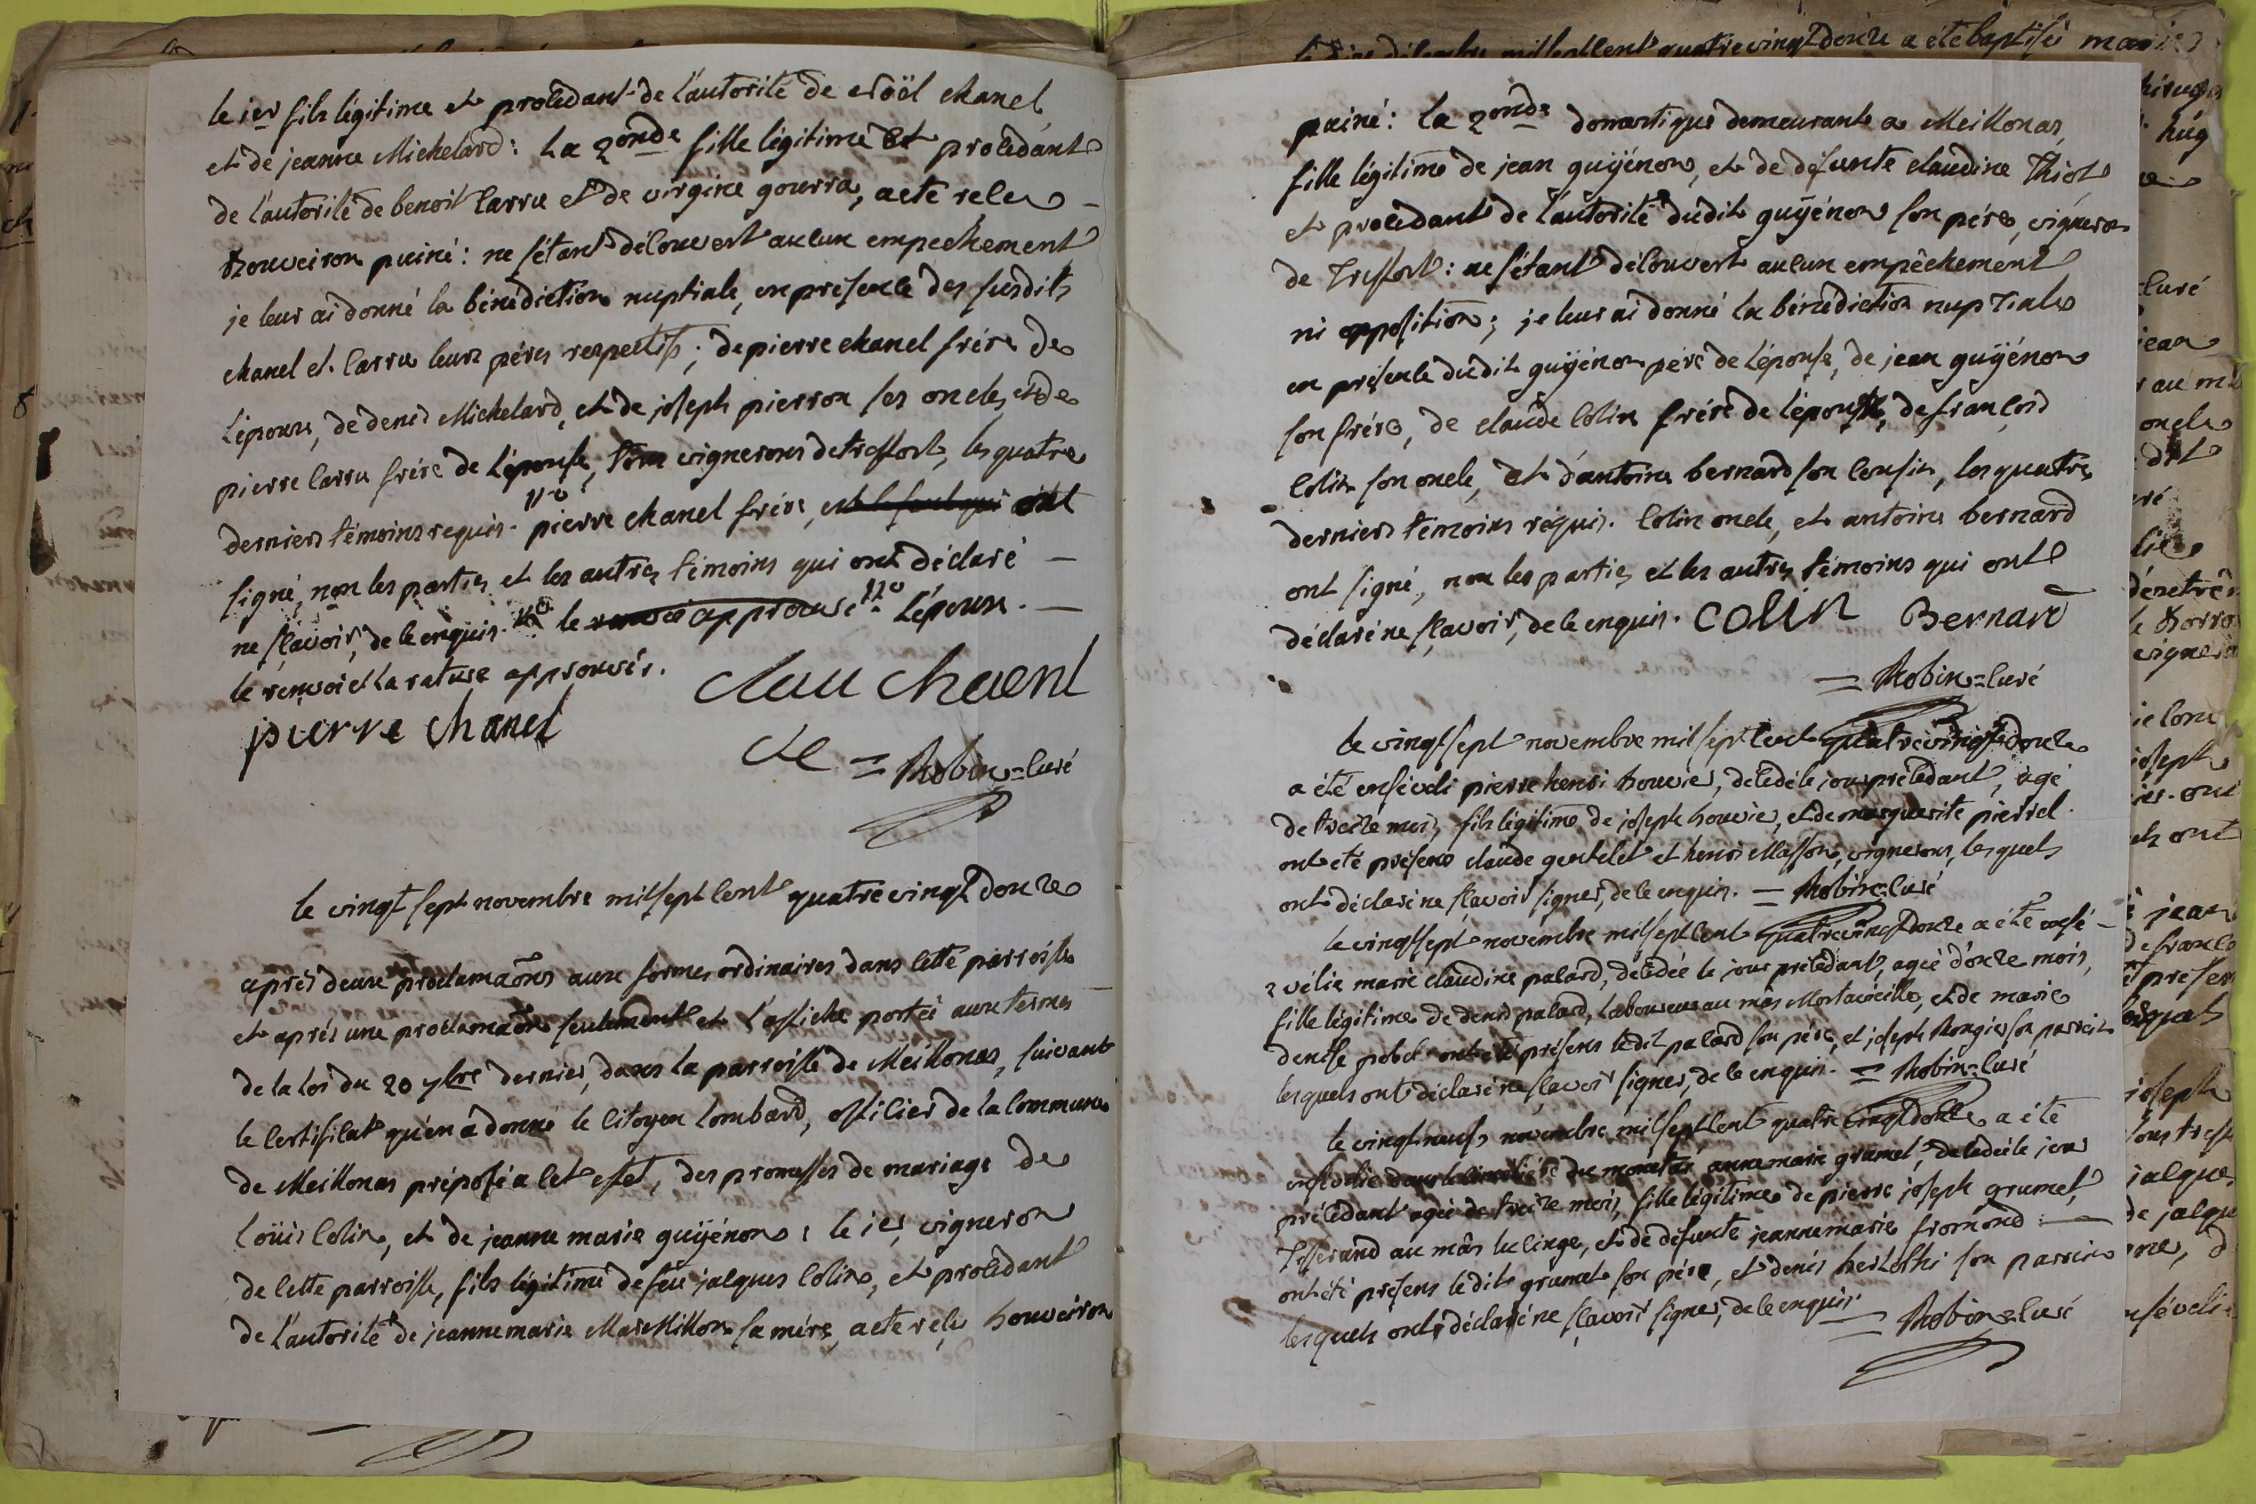 le 1er fils légitime et procédant de l'autorité de noël chanel
et de jeanne Michelard: La 2onde fille légitime et procédant
de l'autorité de benoit Carru et de virgine gourra, acte reli
puiné: ne s'étant découvert aucun empechement
je leur ai donné la bénédiction nuptiale, en présence des susdits
chanel et Carru leurs péres respectifs; de pierre chanel frére de
L'époux, de denis Michelard, et de joseph pierron ses oncles, et de
pierre Carru frére de L'épouse, tous vignerons de treffort, les quatre
derniers témoins requis. pierre chanel frére, est le seul qui ont
signé, non les parties et les autres témoins qui ont déclaré —
ne sçavoir, de ce enquis. le renvoi approuvé L'époux. —
le renvoi et la rature approuvés.
clau chaenl
pierre chanel
= Robin = curé
le vingt sept novembre mil sept cent quatre vingt douze
après deux proclamaõns aux formes ordinaires dans cette parroisse
et aprés une proclamaõn seulement et l'affiche portée aux termes —
de la loi du 20 7bre dernier, dans la parroisse de Meillonas, suivant
le certificat qu'en a donné le Citoyen Lombard, officier de la Commune
de Meillonas préposé a cet effet, des promesses de mariage de
Loüis Colin, et de jeanne marie guÿénon: le 1er vigneron
de cette parroisse, fils légitime de feu jacques Colin, et procédant
de l'autorité de jeanne marie Marmillon sa mére, acte reli bouveiron
puiné: La 2onde domestique demeurante a Meillonas,
fille légitime de jean guÿénon, et de défunte claudine Thiot
et procédant de l'autorité dudit guÿénon son pére, vigneron
de Treffort: ne s'étant découvert aucun empêchement
ni opposition; je leur ai donné la bénédiction nuptiale
en présence dudit guÿénon pére de L'épouse, de jean guÿénon
son frére, de claude Colin frére de L'époux, de françois
Colin son oncle, et d'antoine bernard son cousin, les quatre
derniers témoins réquis. Colin oncle, et antoine bernard
ont signé, non les parties et les autres témoins qui ont
déclaré ne sçavoir, de ce enquis. COLIN Bernard
= Robin = curé
le vingt sept novembre mil sept cent quatre vingt douze
a été enséveli pierre henri bouvier, décédé le jour précédant, agé
de treize mois, fils légitime de joseph bouvier, et de marguerite pierrel.
ont été présens claude gentelet et henri Masson, vignerons, lesquels
ont déclaré ne sçavoir signer, de ce enquis. = Robin = curé
le vingt sept novembre mil sept cent quatre vingt douze a été ensé-
-vélie marie claudine palard, décédée le jour précédant, agée d'onze mois,
fille légitime de denis palard, Laboureur au mas Mortaveille, et de marie
denise pobel. ont été présens ledit palard son pére, et joseph Rongier son parrein
lesquels ont déclaré ne sçavoir signer, de ce enquis. = Robin = curé
le vingt neuf novembre mil sept cent quatre vingt douze a été
ensévelie anne marie grumet, décédée le jour
précédant agée de treize mois, fille légitime de pierre joseph grumet,
Tisserand au mâs lucinge, et de défunte jeanne marie fromond. —
ont été présens ledit grumet son pére, et denis son parrein
lesquels ont déclaré ne sçavoir signer, de ce enquis.
= Robin = curé